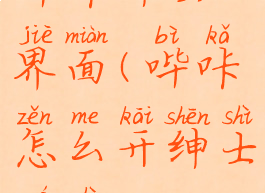 jiè miàn bì kǎ
界面(哔咔
zěn me kāi shēn shì
怎么开绅士